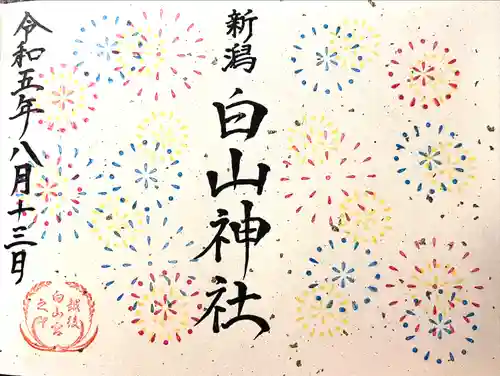 新潟
白山神社
令和五年八月十三日
越後
白山宮
之印